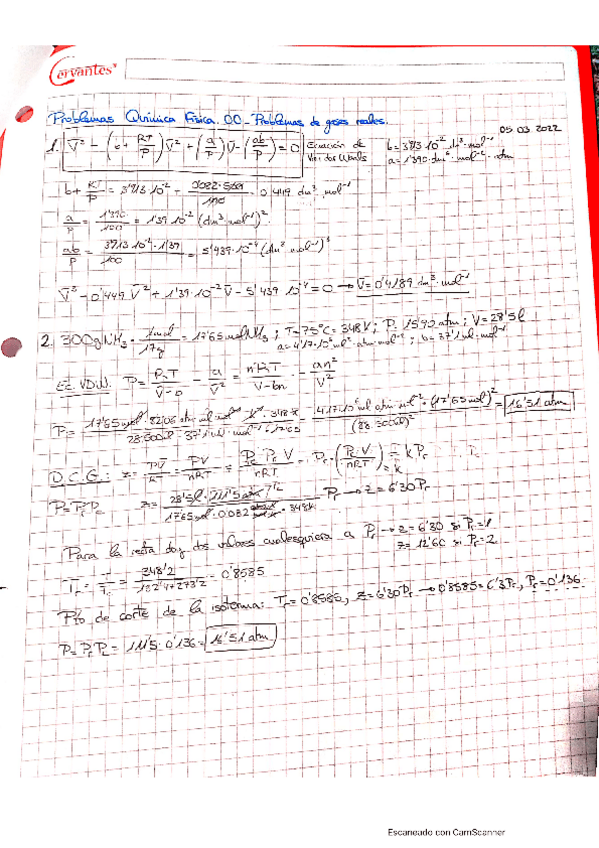 Cervantes
Problemas Química Física. 00.- Problemas de gases reales.
05.03.2022
1. V̄³ - (b + RT/P) V̄² + (a/P) V̄ - (ab/P) = 0 Ecuación de Van der Waals b = 3'913·10⁻² dm³·mol⁻¹
a = 1'390 dm⁶·mol⁻²·atm
b + RT/P = 3'913·10⁻² 0'449 dm³·mol⁻¹
a/P = 1'390/100 = 1'39·10⁻² (dm³·mol⁻¹)²
ab/P = 3'913·10⁻²·1'39/100 = 5'439·10⁻⁴ (dm³·mol⁻¹)³
V̄³ - 0'449 V̄² + 1'39·10⁻² V̄ - 5'439·10⁻⁴ = 0 → V̄ = 0'4189 dm³·mol⁻¹
2. 300g NH₃ · 1mol/17g = 17'65 mol NH₃ ; T = 75ºC = 348K ; P = 15'90 atm ; V = 28'5l
a = 4'17·10⁶ ml²·atm·mol⁻² ; b = 37'1 ml·mol⁻¹
Ec. VDW. P = RT/V̄-b - a/V̄² = nRT/V-bn - an²/V²
P = 17'65 mol·82'06 atm·ml·mol⁻¹·K⁻¹·348K/28500ml - 37'1 ml·mol⁻¹·17'65 - 4'17·10⁶ ml² atm·mol⁻²·(17'65 mol)²/(28500l)² = 16'51 atm
D.C.G.: z = PV̄/RT = PV/nRT = Pc Pr V/nRT = Pr·(Pc V/nRT) = k Pr
P = Pr Pc z = 28'5l·111'5 atm/17'65 mol·0'082·348K Pr → z = 6'30 Pr
Para la recta doy dos valores cualesquiera a Pr → z = 6'30 si Pr = 1
z = 12'60 si Pr = 2
Tr = T/Tc = 348'2/132'4+273'2 = 0'8585
Pto de corte de la isoterma: Tr = 0'8585, z = 6'30 Pr → 0'8585 = 6'3 Pr, Pr = 0'136
P = Pr Pc = 111'5·0'136 = 16'51 atm
Escaneado con CamScanner